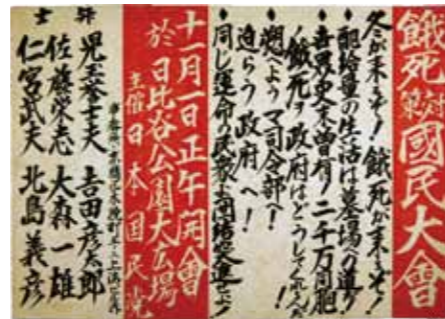 餓死対策
國民大會
冬が来るぞ！餓死が来るぞ！
♦配給量の生活は墓場への道ダ
♦世界史未曽有！二千万同胞
ノ餓死ヲ政府はどうしてくれるんだ！
♦愬へよう マ司令部へ！
迫らう 政府へ！
♦同じ運命の民衆よ団結突進せよ！
十一月一日正午開會
於日比谷公園大広場
主催 日本国民党
弁士
児玉誉士夫 吉田彦太郎
佐藤栄志 大森一雄
仁宮武夫 北島義彦